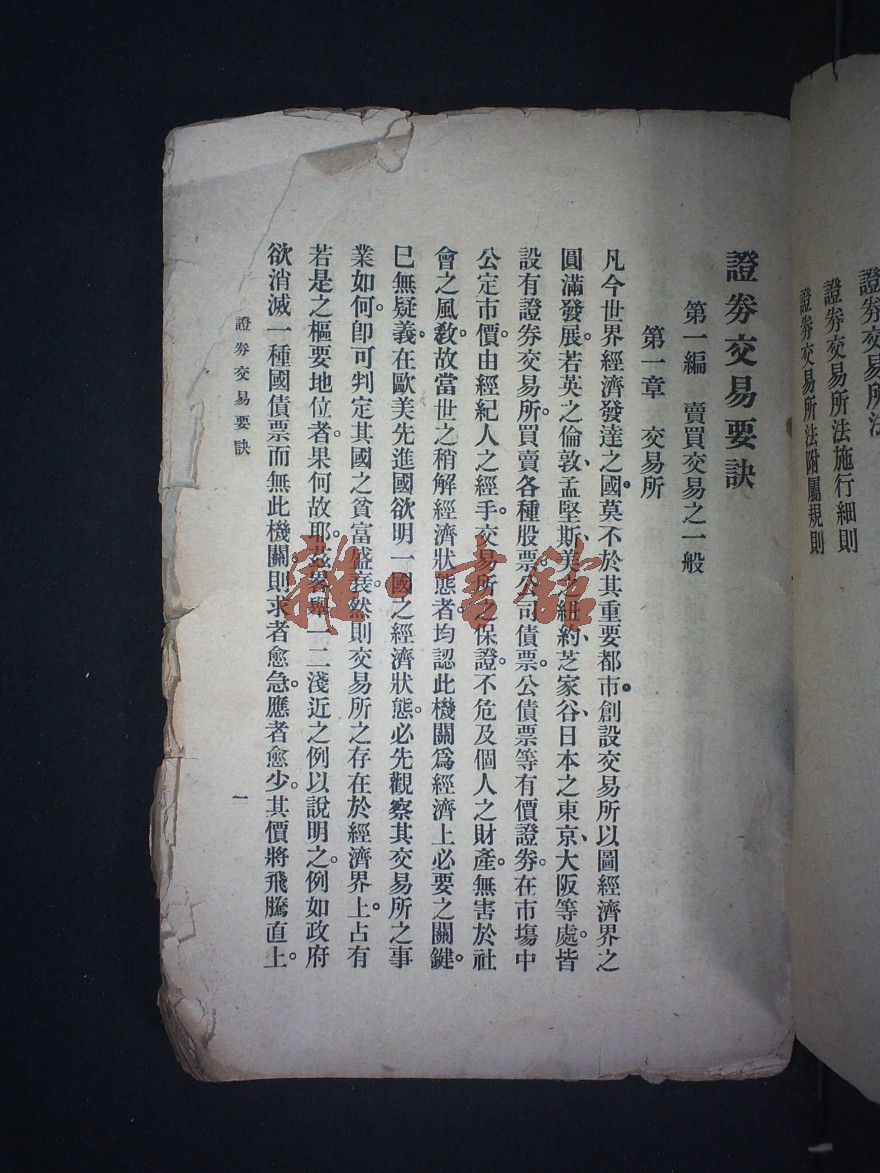 證券交易所法
證券交易所法施行細則
證券交易所法附屬規則
證券交易要訣
第一編　賣買交易之一般
第一章　交易所
凡今世界經濟發達之國。莫不於其重要都市。創設交易所以圖經濟界之
圓滿發展。若英之倫敦、孟堅斯、美之紐約、芝家谷、日本之東京、大阪等處。皆
設有證券交易所。買賣各種股票。公司債票。公債票等有價證券。在市塲中
公定市價。由經紀人之經手。交易所之保證。不危及個人之財產。無害於社
會之風敎。故當世之稍解經濟狀態者。均認此機關爲經濟上必要之關鍵。
已無疑義。在歐美先進國欲明一國之經濟狀態。必先觀察其交易所之事
業如何。卽可判定其國之貧富盛衰。然則交易所之存在於經濟界上。占有
若是之樞要地位者。果何故耶。茲畧舉一二淺近之例以說明之。例如政府
欲消滅一種國債票而無此機關。則求者愈急。應者愈少。其價將飛騰直上。
證券交易要訣
一
雜·書館